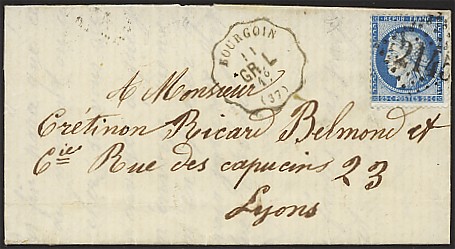 BOURGOIN
11
GR.L
(37)
REPUB. FRANC.
POSTES
A Monsieur
Crétinon Ricard Belmond et
Cie Rue des capucins 23
Lyons